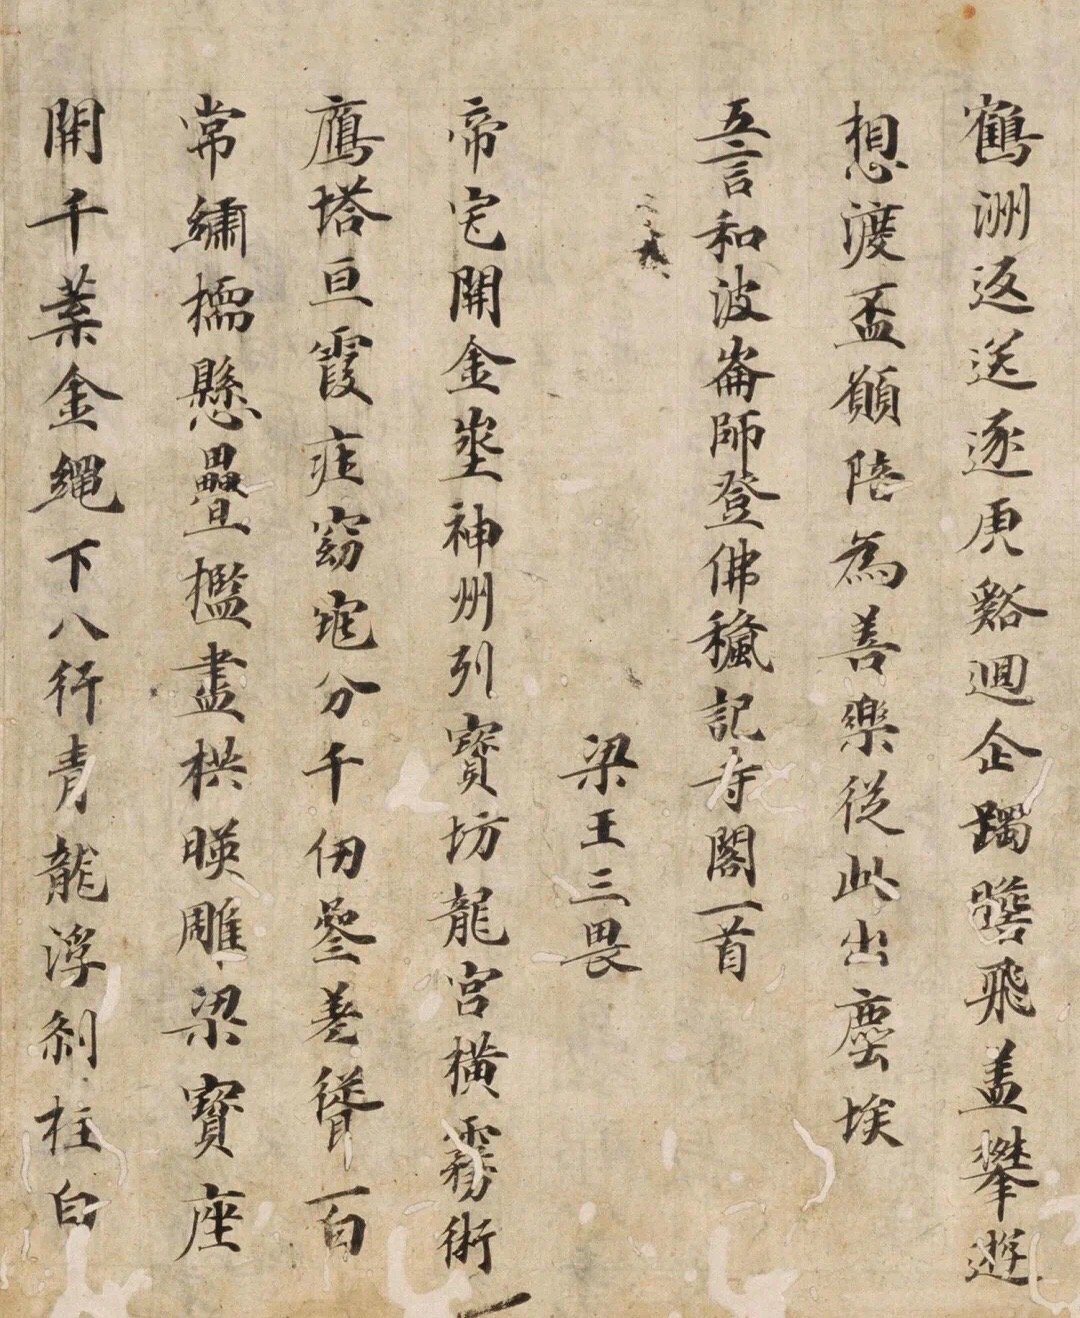 鶴洲返送逐庾谿迴企躅蹔飛盖攀遊
想渡盃願陪為善樂從此出塵埃
五言和波崙師登佛窺記寺閣一首
梁王三畏
帝宅開金埊神州列寶坊龍宮橫霧術
鴈塔亘霞庄窈窕分千仞參差聳一百
常繡櫺懸疊檻畫栱暎雕梁寶座
開千葉金繩下八行青龍浮刹柱白